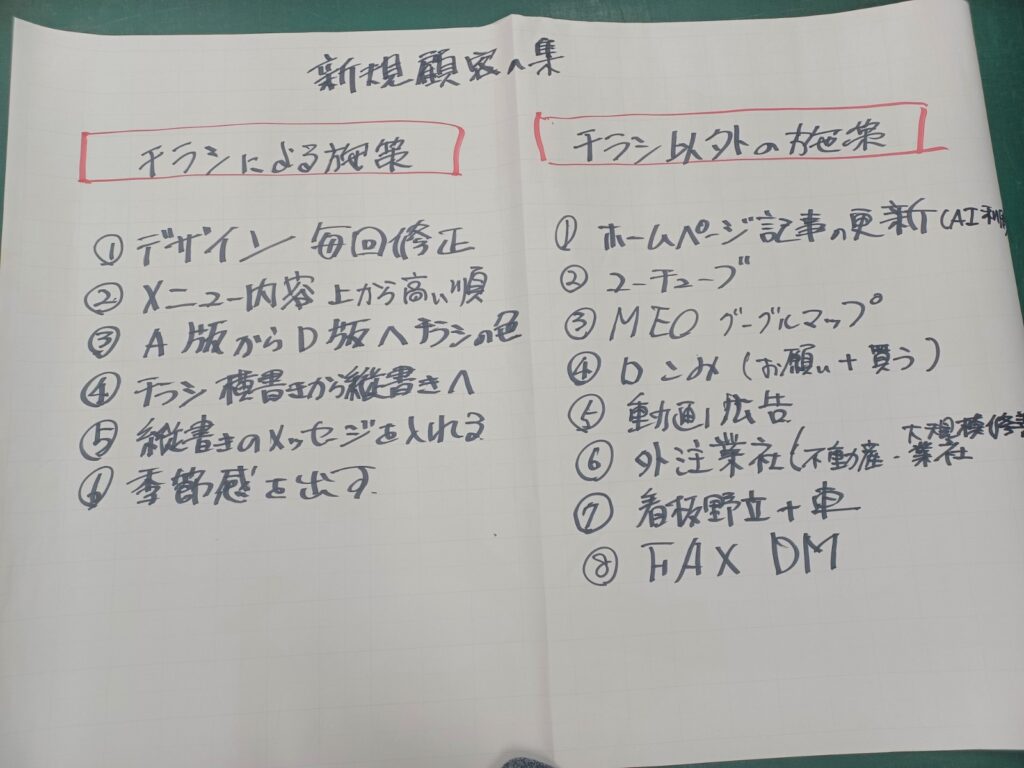 新規顧客へ集
チラシによる施策
① デザイン 毎回修正
② メニュー内容 上から高い順
③ A版からD版へチラシの色
④ チラシ 横書きから縦書きへ
⑤ 縦書きのメッセージを入れる
⑥ 季節感を出す
チラシ以外の施策
① ホームページ記事の更新(AI利
② ユーチューブ
③ MEO グーグルマップ
④ 口こみ (お願い+買う)
⑤ 動画広告
⑥ 外注業社(不動産・大規模修
業社
⑦ 看板野立+車
⑧ FAX DM